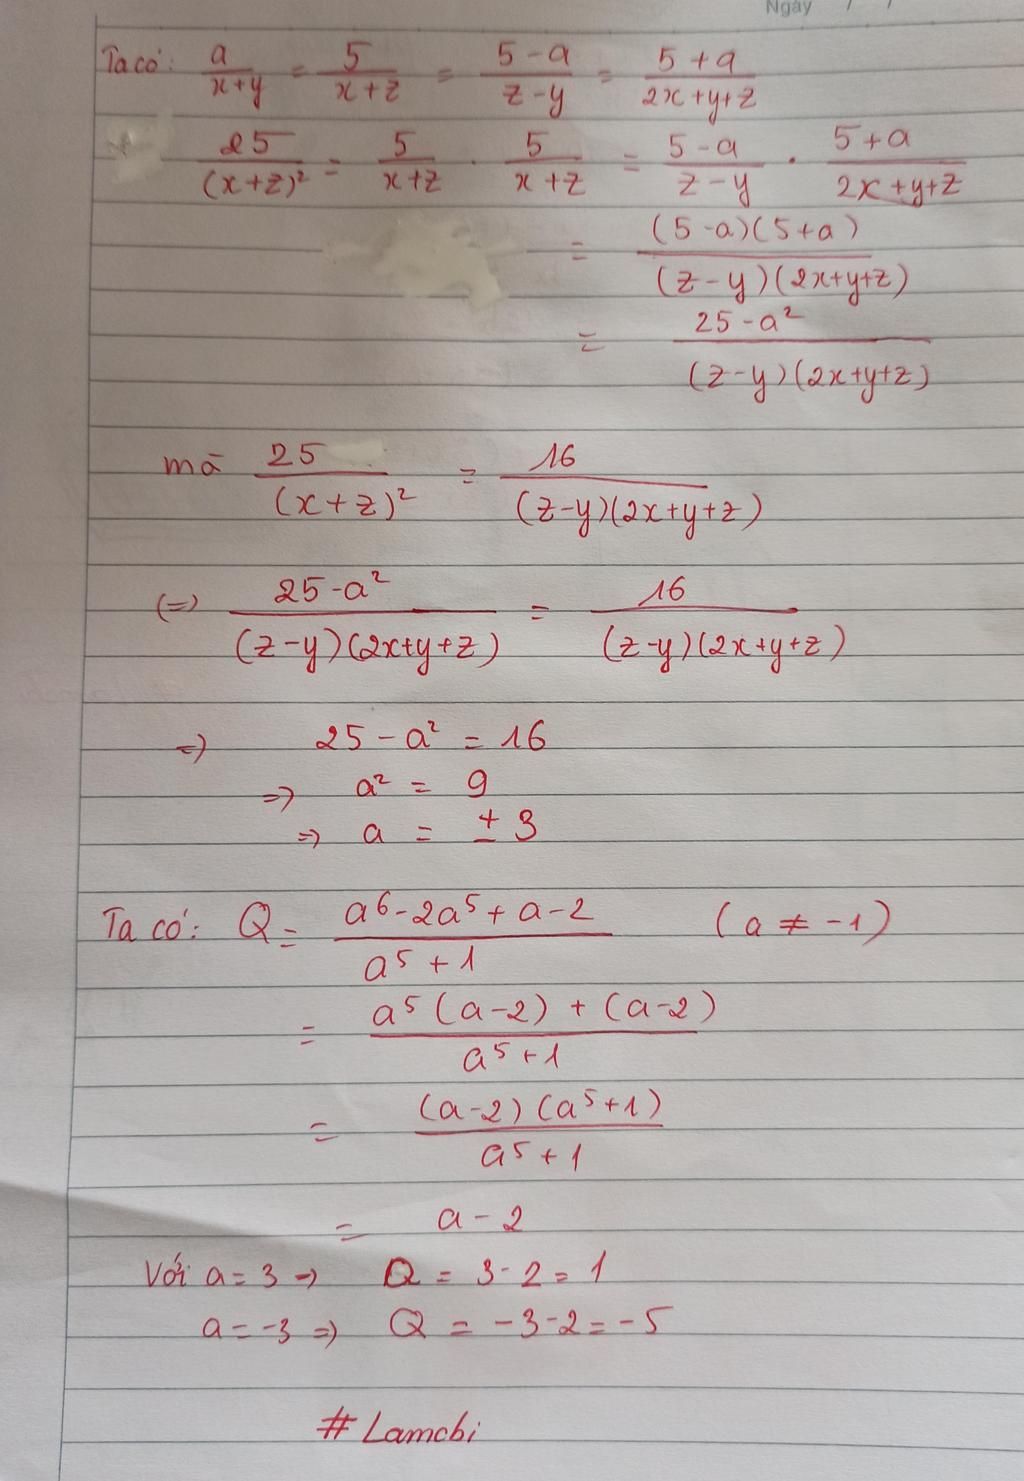 Ngày / /
Ta có: a/(x+y) = 5/(x+z) = (5-a)/(z-y) = (5+a)/(2x+y+z)
25/(x+z)² = 5/(x+z) . 5/(x+z) = (5-a)/(z-y) . (5+a)/(2x+y+z)
= (5-a)(5+a)/((z-y)(2x+y+z))
= (25-a²)/((z-y)(2x+y+z))
mà 25/(x+z)² = 16/((z-y)(2x+y+z))
(=) (25-a²)/((z-y)(2x+y+z)) = 16/((z-y)(2x+y+z))
=) 25-a² = 16
=) a² = 9
=) a = ±3
Ta có: Q = (a⁶-2a⁵+a-2)/(a⁵+1) (a ≠ -1)
= (a⁵(a-2)+(a-2))/(a⁵+1)
= ((a-2)(a⁵+1))/(a⁵+1)
= a-2
Với a=3 => Q = 3-2=1
a=-3 =) Q = -3-2=-5
# Lamchi